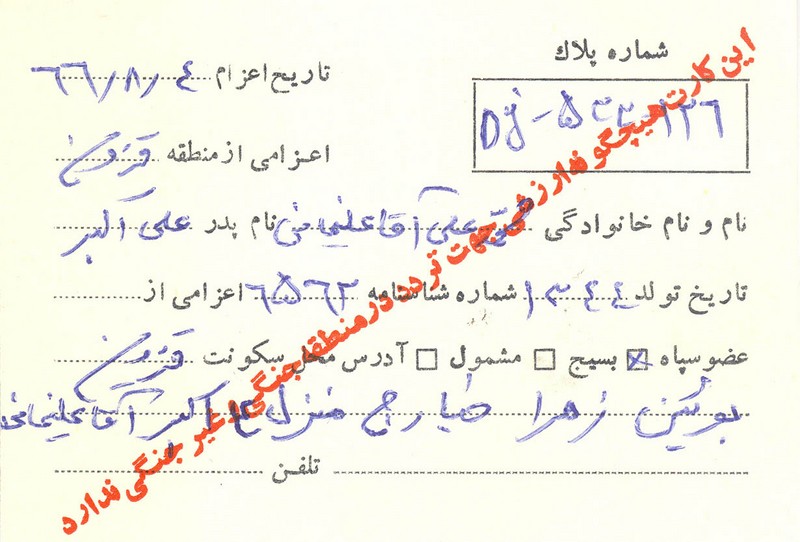 شماره پلاك
تاریخ اعزام ۶۶/۸/۴
اعزامی از منطقه قزوین
نام و نام خانوادگی علی آقاعلیخانی نام پدر علی اکبر
تاریخ تولد ۱۳۴۴ شماره شناسنامه ۶۵۶۲ اعزامی از
عضو سپاه ☒ بسیج ☐ مشمول ☐ آدرس محل سکونت قزوین
بوئین زهرا منزل اکبر آقاعلیخانی
تلفن
این کارت هیچگونه ارزشی جهت تردد در منطقه جنگی و غیر جنگی ندارد